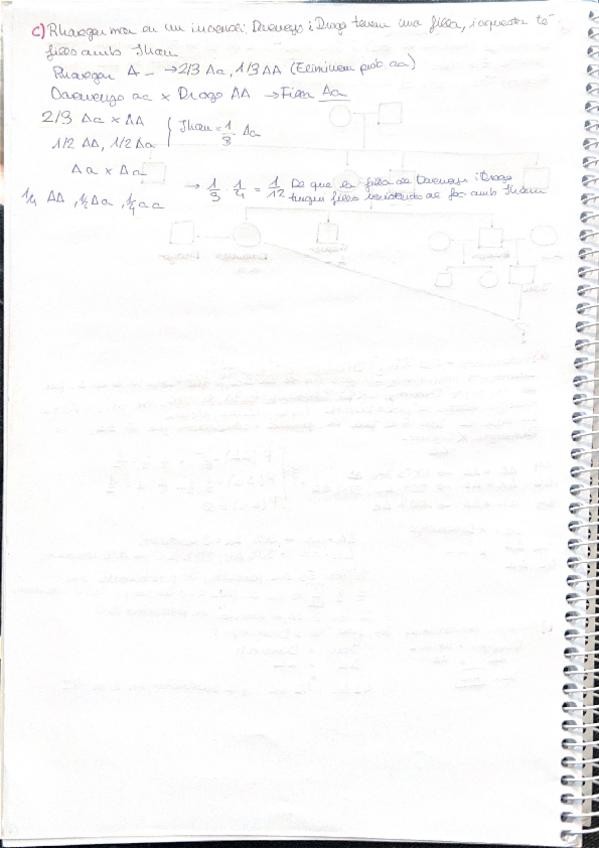 c) Rhaegar mor en un incendi. Daenerys i Drogo tenen una filla, i aquesta té
fills amb Jhan
Rhaegar A_ → 2/3 Aa, 1/3 AA (Eliminem prob aa)
Daenerys aa x Drogo AA → Filla Aa
2/3 Aa x AA
1/2 AA, 1/2 Aa { Jhan = 1/3 Aa
Aa x Aa
1/4 AA, 1/2 Aa, 1/4 aa
→ 1/3 · 1/4 = 1/12 De que la filla de Daenerys i Drogo
tinguin fills resistents al foc amb Jhan